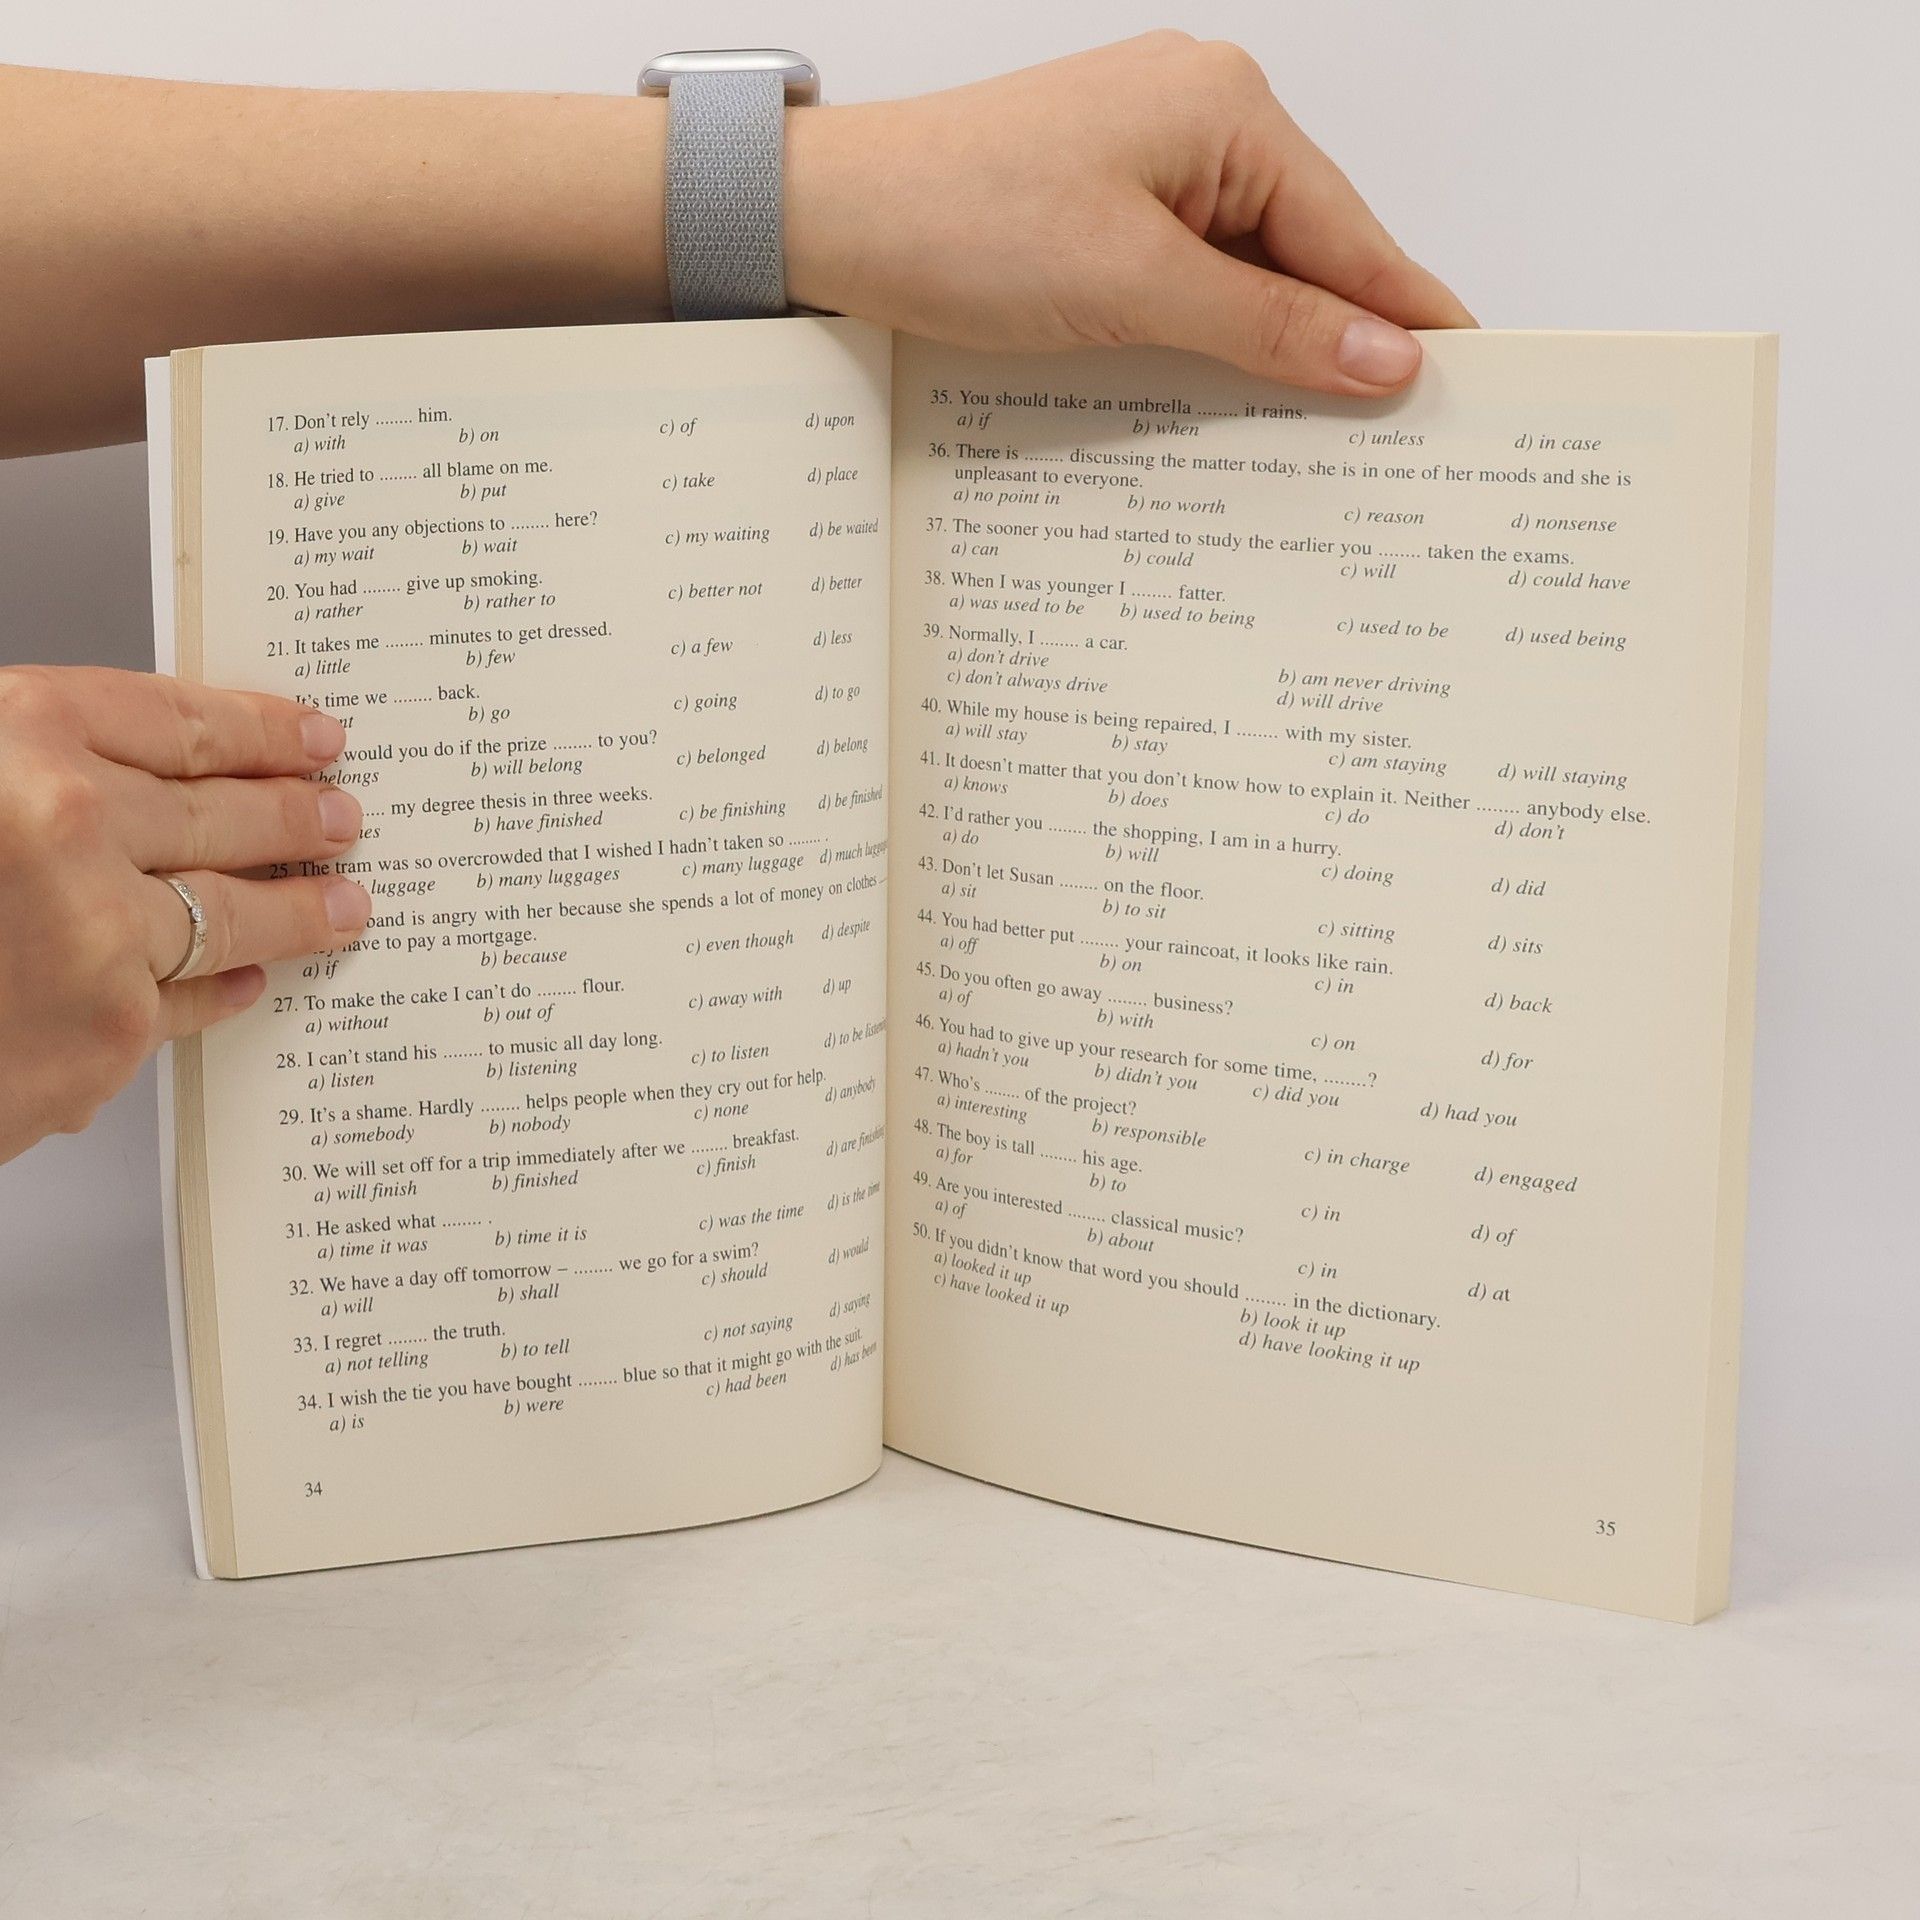 17. Don't rely ........ him.
a) with b) on c) of d) upon
18. He tried to ........ all blame on me.
a) give b) put c) take d) place
19. Have you any objections to ........ here?
a) my wait b) wait c) my waiting d) be waited
20. You had ........ give up smoking.
a) rather b) rather to c) better not d) better
21. It takes me ........ minutes to get dressed.
a) little b) few c) a few d) less
It's time we ........ back.
b) go c) going d) to go
would you do if the prize ........ to you?
belongs b) will belong c) belonged d) belong
my degree thesis in three weeks.
b) have finished c) be finishing d) be finished
25. The tram was so overcrowded that I wished I hadn't taken so ........ .
luggage b) many luggages c) many luggage d) much
is angry with her because she spends a lot of money on clothes –
have to pay a mortgage.
a) if b) because c) even though d) despite
27. To make the cake I can't do ........ flour.
a) without b) out of c) away with d) up
28. I can't stand his ........ to music all day long.
a) listen b) listening c) to listen d) to be
29. It's a shame. Hardly ........ helps people when they cry out for help.
a) somebody b) nobody c) none d) anybody
30. We will set off for a trip immediately after we ........ breakfast.
a) will finish b) finished c) finish d) are
31. He asked what ........ .
a) time it was b) time it is c) was the time d) is the time
32. We have a day off tomorrow – ........ we go for a swim?
a) will b) shall c) should d) would
33. I regret ........ the truth.
a) not telling b) to tell c) not saying d) saying
34. I wish the tie you have bought ........ blue so that it might go with the suit.
a) is b) were c) had been d) has been
34
35. You should take an umbrella ........ it rains.
a) if b) when c) unless d) in case
36. There is ........ discussing the matter today, she is in one of her moods and she is
unpleasant to everyone.
a) no point in b) no worth c) reason d) nonsense
37. The sooner you had started to study the earlier you ........ taken the exams.
a) can b) could c) will d) could have
38. When I was younger I ........ fatter.
a) was used to be b) used to being c) used to be d) used being
39. Normally, I ........ a car.
a) don't drive b) am never driving
c) don't always drive d) will drive
40. While my house is being repaired, I ........ with my sister.
a) will stay b) stay c) am staying d) will staying
41. It doesn't matter that you don't know how to explain it. Neither ........ anybody else.
a) knows b) does c) do d) don't
42. I'd rather you ........ the shopping, I am in a hurry.
a) do b) will c) doing d) did
43. Don't let Susan ........ on the floor.
a) sit b) to sit c) sitting d) sits
44. You had better put ........ your raincoat, it looks like rain.
a) off b) on c) in d) back
45. Do you often go away ........ business?
a) of b) with c) on d) for
46. You had to give up your research for some time, ........?
a) hadn't you b) didn't you c) did you d) had you
47. Who's ........ of the project?
a) interesting b) responsible c) in charge d) engaged
48. The boy is tall ........ his age.
a) for b) to c) in d) of
49. Are you interested ........ classical music?
a) of b) about c) in d) at
50. If you didn't know that word you should ........ in the dictionary.
a) looked it up b) look it up
c) have looked it up d) have looking it up
35